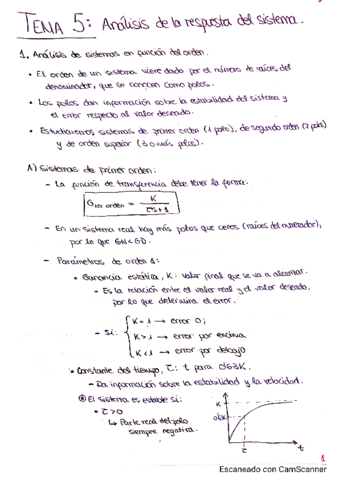 TEMA 5: Análisis de la respuesta del sistema.
1. Análisis de sistemas en función del orden.
• El orden de un sistema viene dado por el número de raíces del
denominador, que se conocen como polos.
• Los polos dan información sobre la estabilidad del sistema y
el error respecto al valor deseado.
• Estudiaremos sistemas de primer orden (1 polo), de segundo orden (2 polos)
y de orden superior (3 o más polos).
A) Sistemas de primer orden:
- La función de transferencia debe tener la forma:
G1er orden = K / (τs+1)
- En un sistema real hay más polos que ceros (raíces del numerador),
por lo que GN<GD.
- Parámetros de orden 1:
• Ganancia estática, K: valor final que se va a alcanzar.
- Es la relación entre el valor real y el valor deseado,
por lo que determina el error.
- Si: { K = 1 → error 0;
K > 1 → error por encima
K < 1 → error por debajo
• Constante del tiempo, τ: t para 0'63K.
- Da información sobre la estabilidad y la velocidad.
⊛ El sistema es estable si:
• τ>0
↳ Parte real del polo
siempre negativa.
K
τ
t
1
Escaneado con CamScanner